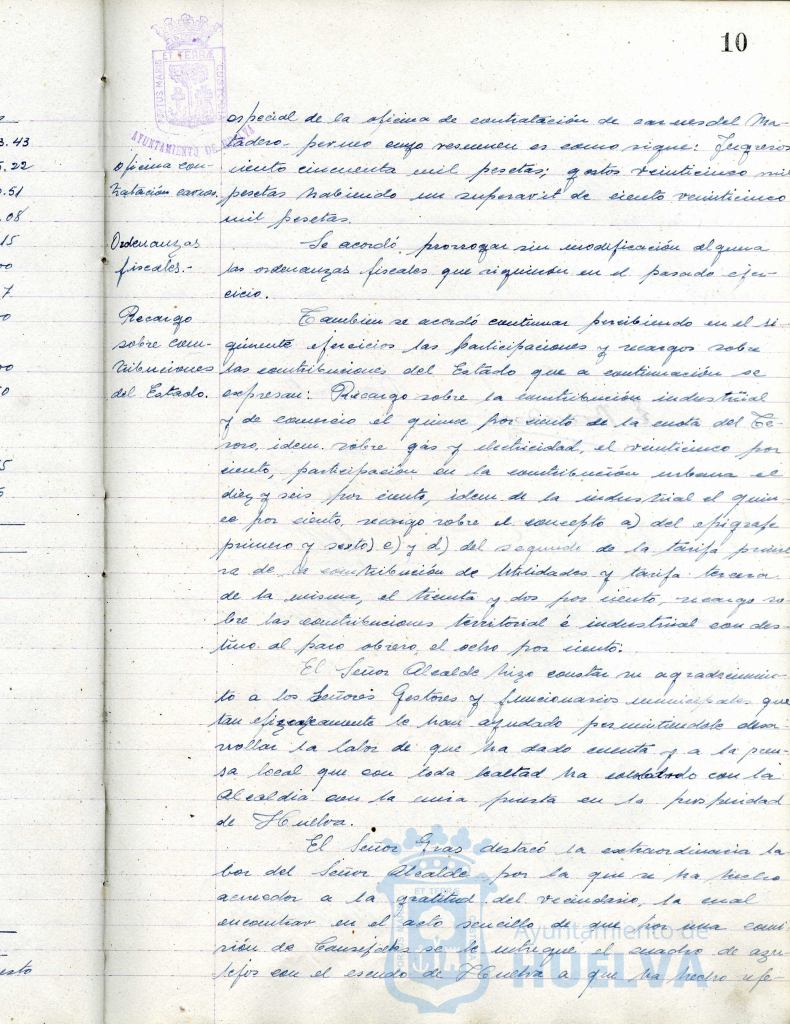 10
ET TERRÆ
PORTUS MARIS
CUSTODIA
AYUNTAMIENTO DE HUELVA
especial de la oficina de contratación de carnes del Ma-
tadero- cuyo resumen es como sigue: Ingresos
ciento cincuenta mil pesetas; gastos veinticinco mil
pesetas habiendo un superavit de ciento veinticinco
mil pesetas.
Oficina con-
tratación carnes.
Se acordó prorrogar sin modificación alguna
las ordenanzas fiscales que rigieron en el pasado ejer-
cicio.
Ordenanzas
fiscales.-
Tambien se acordó continuar percibiendo en el si-
guiente ejercicios las participaciones y recargos sobre
las contribuciones del Estado que a continuación se
expresan: Recargo sobre la contribución industrial
y de comercio el quince por ciento de la cuota del Te-
soro, idem. sobre gas y electricidad, el veinticinco por
ciento, participacion en la contribución urbana el
diez y seis por ciento, idem de la industrial el quin-
ce por ciento, recargo sobre el concepto a) del epigrafe
primero y sexto) c) y d) del segundo de la tarifa prime-
ra de la contribución de Utilidades y tarifa tercera
de la misma, el treinta y dos por ciento, recargo so-
bre las contribuciones territorial é industrial con des-
tino al paro obrero, el ocho por ciento.
Recargo
sobre con-
tribuciones
del Estado.
El Señor Alcalde hizo constar su agradecimien-
to a los Señores Gestores y funcionarios municipales que
tan eficazmente le han ayudado permitiendole desa-
rrollar la labor de que ha dado cuenta y a la pren-
sa local que con toda lealtad ha colaborado con la
Alcaldia con la mira puesta en la prosperidad
de Huelva.
El Señor Gras destacó la extraordinaria la-
bor del Señor Alcalde por la que se ha hecho
acreedor a la gratitud del vecindario, la cual
encontrar en el acto sencillo de que por una comi-
sión de Concejales se le entregue el cuadro de azu-
lejos con el escudo de Huelva a que ha hecho refe-
3.43
5.22
.51
.08
15
Ayuntamiento de
HUELVA